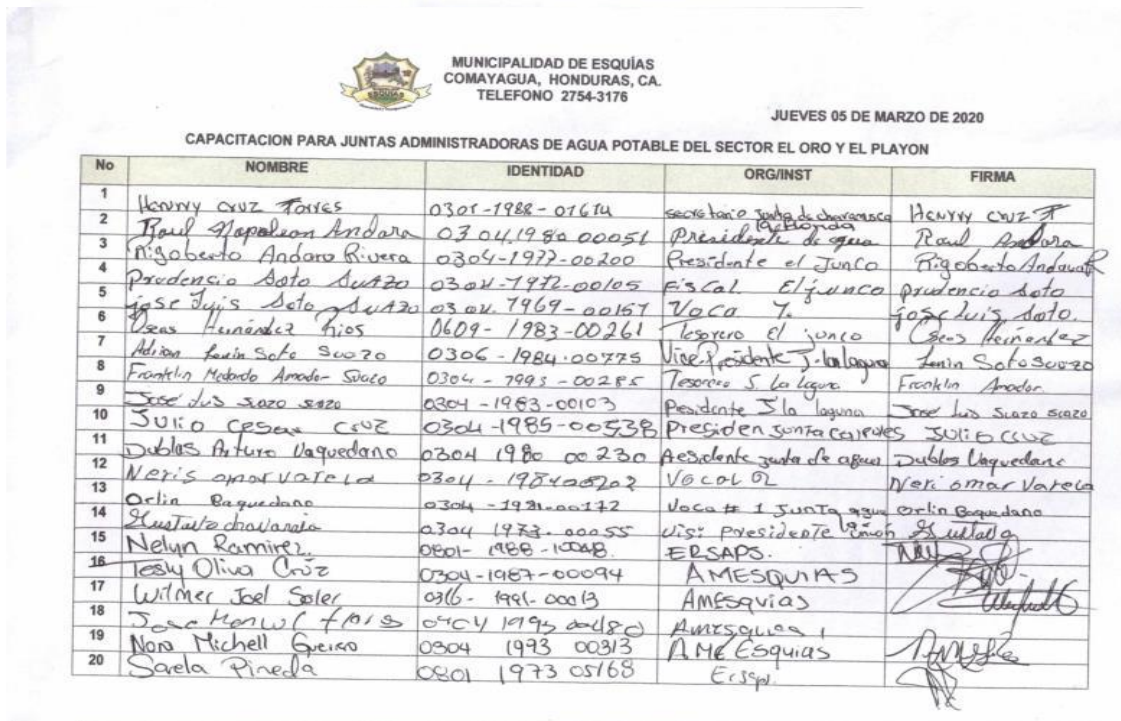 MUNICIPALIDAD DE ESQUÍAS
COMAYAGUA, HONDURAS, CA.
TELEFONO 2754-3176
ESQUIAS
JUEVES 05 DE MARZO DE 2020
CAPACITACION PARA JUNTAS ADMINISTRADORAS DE AGUA POTABLE DEL SECTOR EL ORO Y EL PLAYON
No NOMBRE IDENTIDAD ORG/INST FIRMA
1 Henrry cruz Torres 0301-1988-01614 secretario junta de Henrry cruz T
2 Raul Napoleon Andara 0304.1980 00051 Presidente de agua Raul Andara
3 Rigoberto Andara Rivera 0304-1977-00200 Presidente el Junco Rigoberto Andara R
4 Prudencio Soto Suazo 0304-1972-00105 Fiscal El junco prudencio Soto
5 jose Luis Soto Suazo 0304.1969-00157 Voca 1. jose luis Soto.
6 Oseas Hernández Rios 0609-1983-00261 Tesorero El junco Oseas Hernández
7 Adrian Lenin Soto Suazo 0306-1984-00775 Vice Presidente J. la laguna Lenin Soto Suazo
8 Franklin Medardo Amador Suazo 0304-1993-00285 Tesorero J. La laguna Franklin Amador
9 José luis suazo suazo 0304-1983-00103 Pesidente J la laguna José luis suazo suazo
10 JULIO cesar cruz 0304-1985-00538 Presiden junta JULIO cruz
11 Dublas Arturo Vaquedano 0304 1980 00230 Presidente junta de agua Dublas Vaquedano
12 Neris omar varela 0304-1984 Vocal 02 Neri omar Varela
13 Orlin Baquedano 0304-1991-00172 Voca # 1 Junta agua Orlin Baquedano
14 Gustavo chavarria 0304 1973.00055 visi presidente unión Gustavo
15 Nelyn Ramirez. 0801-1988-10048. ERSAPS.
16 Tesly Oliva Cruz 0304-1987-00094 AMESQUIAS
17 Wilmer Joel Soler 0316-1991-00013 AMESquias
18 Jose Manuel 1995 00480 Amesquias
19 Nora Michell 0304 1993 00313 AME Esquias
20 Sarela Pineda 0801 1973 05168 Ersaps.